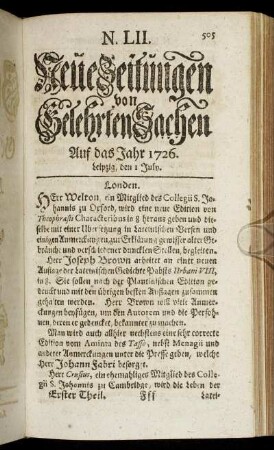 N. LII. 505
Neue Zeitungen
von
Gelehrten Sachen
Auf das Jahr 1726.
Leipzig, den 1 July.
Londen.
HErr Welron, ein Mitglied des Collegii S. Jo-
hannis zu Oxford, wird eine neue Edition von
Theophrasti Characteribus in 8 heraus geben und die-
selbe mit einer Ubersetzung in Lateinischen Versen und
einigen Anmerckungen zur Erklärung gewisser alter Ge-
bräuche und verschiedener dunckeln Stellen, begleiten.
Herr Joseph Brown arbeitet an einer neuen
Auflage der Lateinischen Gedichte Pabsts Urbani VIII,
in 8. Sie sollen nach der Plantinischen Edition ge-
druckt und mit den übrigen besten Auflagen zusammen
gehalten werden. Herr Brown will viele Anmer-
ckungen beyfügen, um den Autorem und die Perso-
nen, deren er gedencket, bekannter zu machen.
Man wird auch allhier nechstens eine sehr correcte
Edition vom Aminta des Tasso, nebst Menagii und
anderer Anmerckungen unter die Presse geben, welche
Herr Johann Fabri besorget.
Herr Crusius, ein ehemahliges Mitglied des Colle-
gii S. Johannis zu Cambridge, wird die Leben der
Erster Theil. Fff Latei-